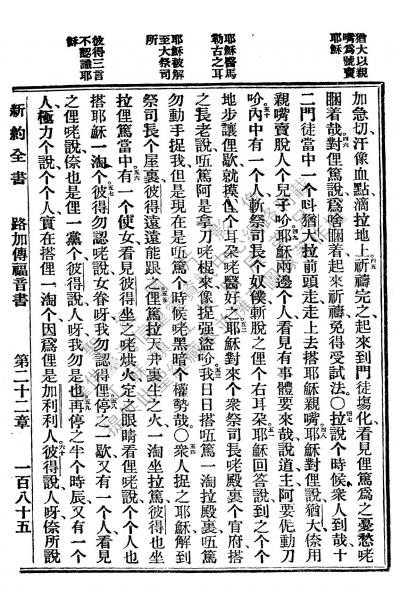 猶大以親
嘴爲號賣
耶穌
耶穌醫馬
勒古之耳
耶穌被解
至大祭司
所
彼得三言
不認識耶
穌
加急切汗像血點滴拉地上祈禱完之起來到門徒塲化看見俚篤爲之憂愁咾
睏着哉對俚篤說爲啥睏着起來祈禱免得受試法○拉說個時候衆人到哉十
二門徒當中一個呌猶大拉前頭走走上去搭耶穌親嘴耶穌對俚說猶大倷用
親嘴賣脫人個兒子吤耶穌兩邊個人看見有事體要來哉說道主阿要伲動刀
吤內中有一個人斬祭司長個奴僕斬脫之俚個右耳朵耶穌回答說到之个个
地步讓俚歇就摸個耳朵咾醫好之耶穌對來個衆祭司長咾殿裏個官府搭
之長老說㕶篤阿是拿刀咾棍來像捉强盜吤我日日搭㕶篤一淘拉殿裏㕶篤
勿動手捉我但是現在是㕶篤個時候咾黑暗個權勢哉○衆人捉之耶穌解到
祭司長個屋裏彼得遠遠能跟之俚篤拉天井裏生之火一淘坐拉篤彼得也坐
拉俚篤當中有一個使女看見彼得坐之咾烘火定之眼睛看俚咾說個個人也
搭耶穌一淘個彼得勿認咾說女眷呀我勿認得俚停之一歇又有一個人看見
之俚咾說倷也是俚一黨個彼得說人呀我勿是也再停之半個時辰又有一個
人極力個說個個人實在搭俚一淘個因爲俚是加利利人彼得說人呀倷所說
新約全書 路加傳福音書 第二十二章 一百八十五